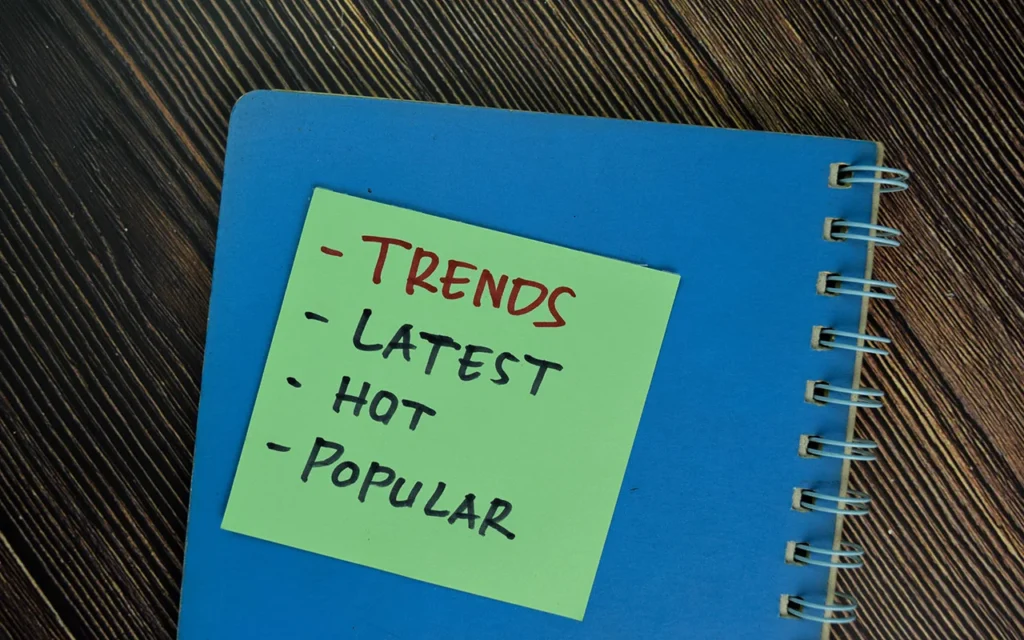 - TRENDS
- LATEST
- HOT
- POPULAR